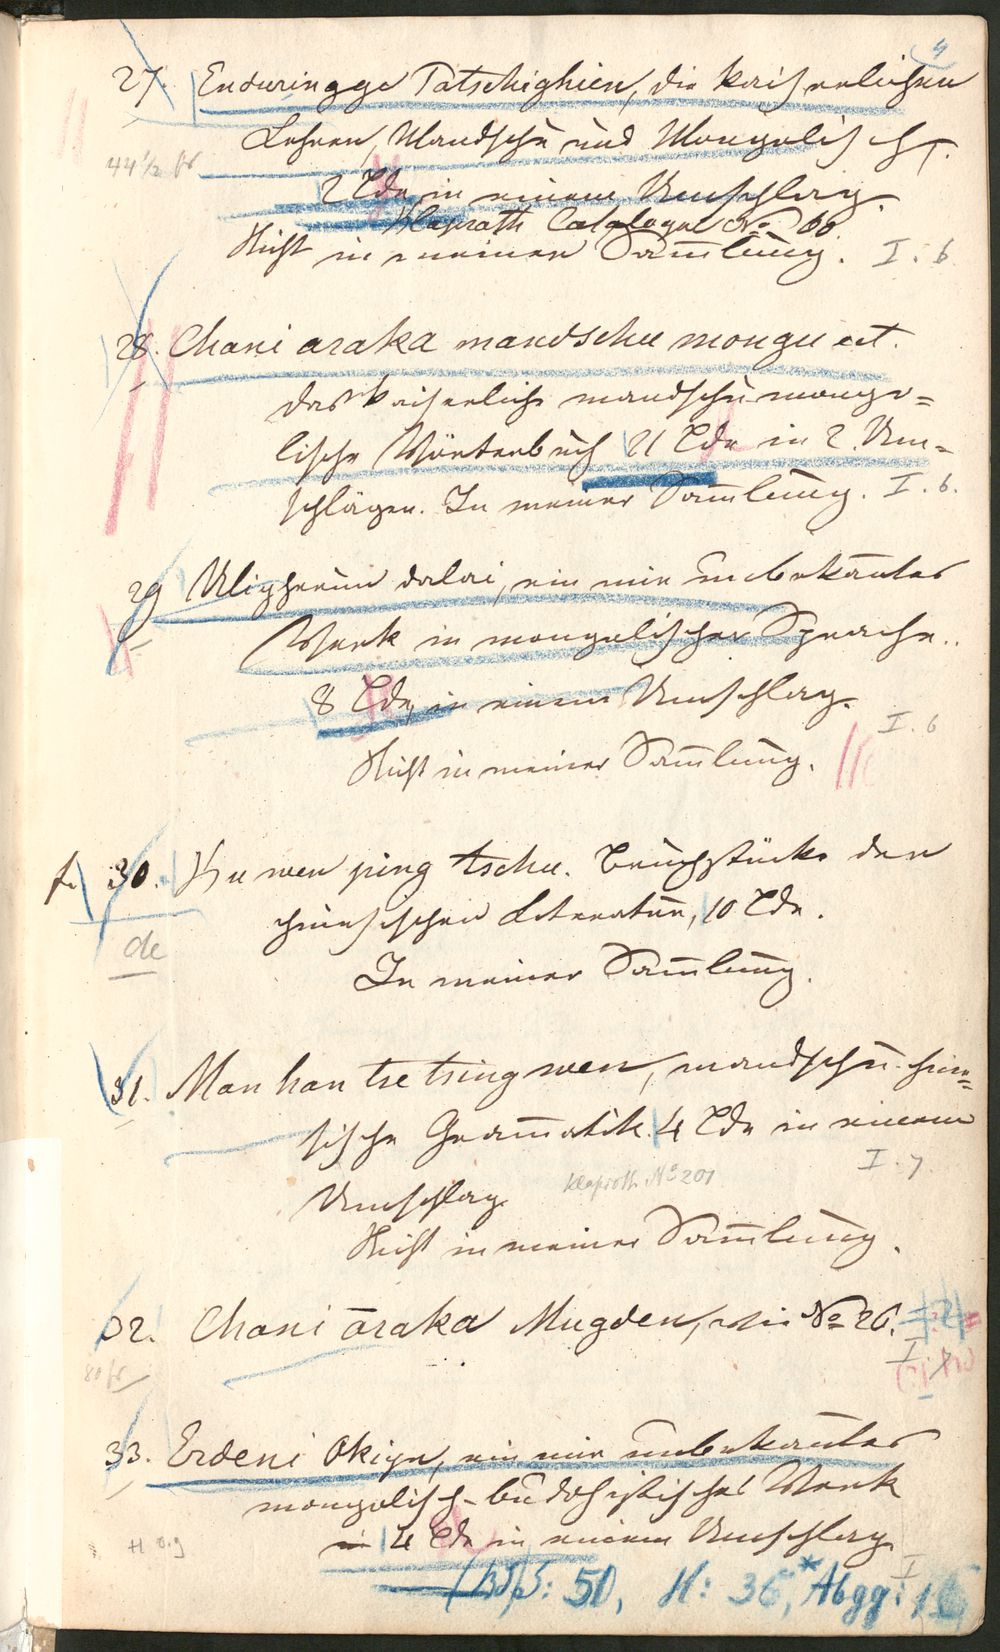 27. Enduringge Tatschighien, die kaiserlichen
Lehren, Mandschu und Mongolisch.
44 1/2 fr
2 Bde, in einem Umschlag.
Klaproth Catalogue No 66.
Nicht in meiner Sam̄lung. I. 6
28. Chani araka mandschu mongu
das kaiserliche mandschu mongo=
lische Wörterbuch 21 Bde in 2 Um=
schlägen. In meiner Sam̄lung. I. 6.
29 Uligherün dalai, ein mir unbekan̄tes
Werk in mongolischer Sprache.
8 Bde, in einem Umschlag.
I. 6
Nicht in meiner Sam̄lung.
f. 30. Ku wen ping tschu. Bruchstücke der
chinesischen Literatur, 10 Bde.
de
In meiner Sam̄lung.
31. Man han tse tsing wen, mandschu chine=
sische Gram̄atik. 4 Bde in einem
I. 7.
Umschlag. Klaproth No 201
Nicht in meiner Sam̄lung.
32. Chani araka Mugden, wie No 26.
80 fr
33. Erdeni Okigu, ein mir unbekan̄tes
mongolisch-budhistisches Werk
in 4 Bde in einem Umschlag.
I
50, H: 36, * Abgg: 1